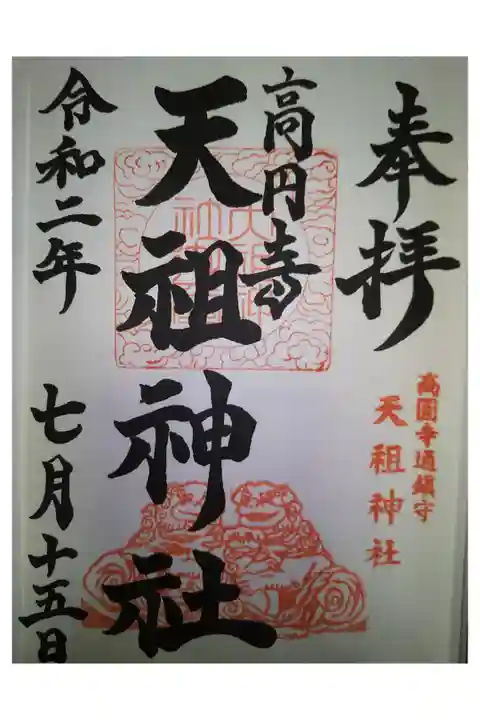 奉拝
高円寺
天祖神社
令和二年
七月十五日
高圓寺通鎮守
天祖神社